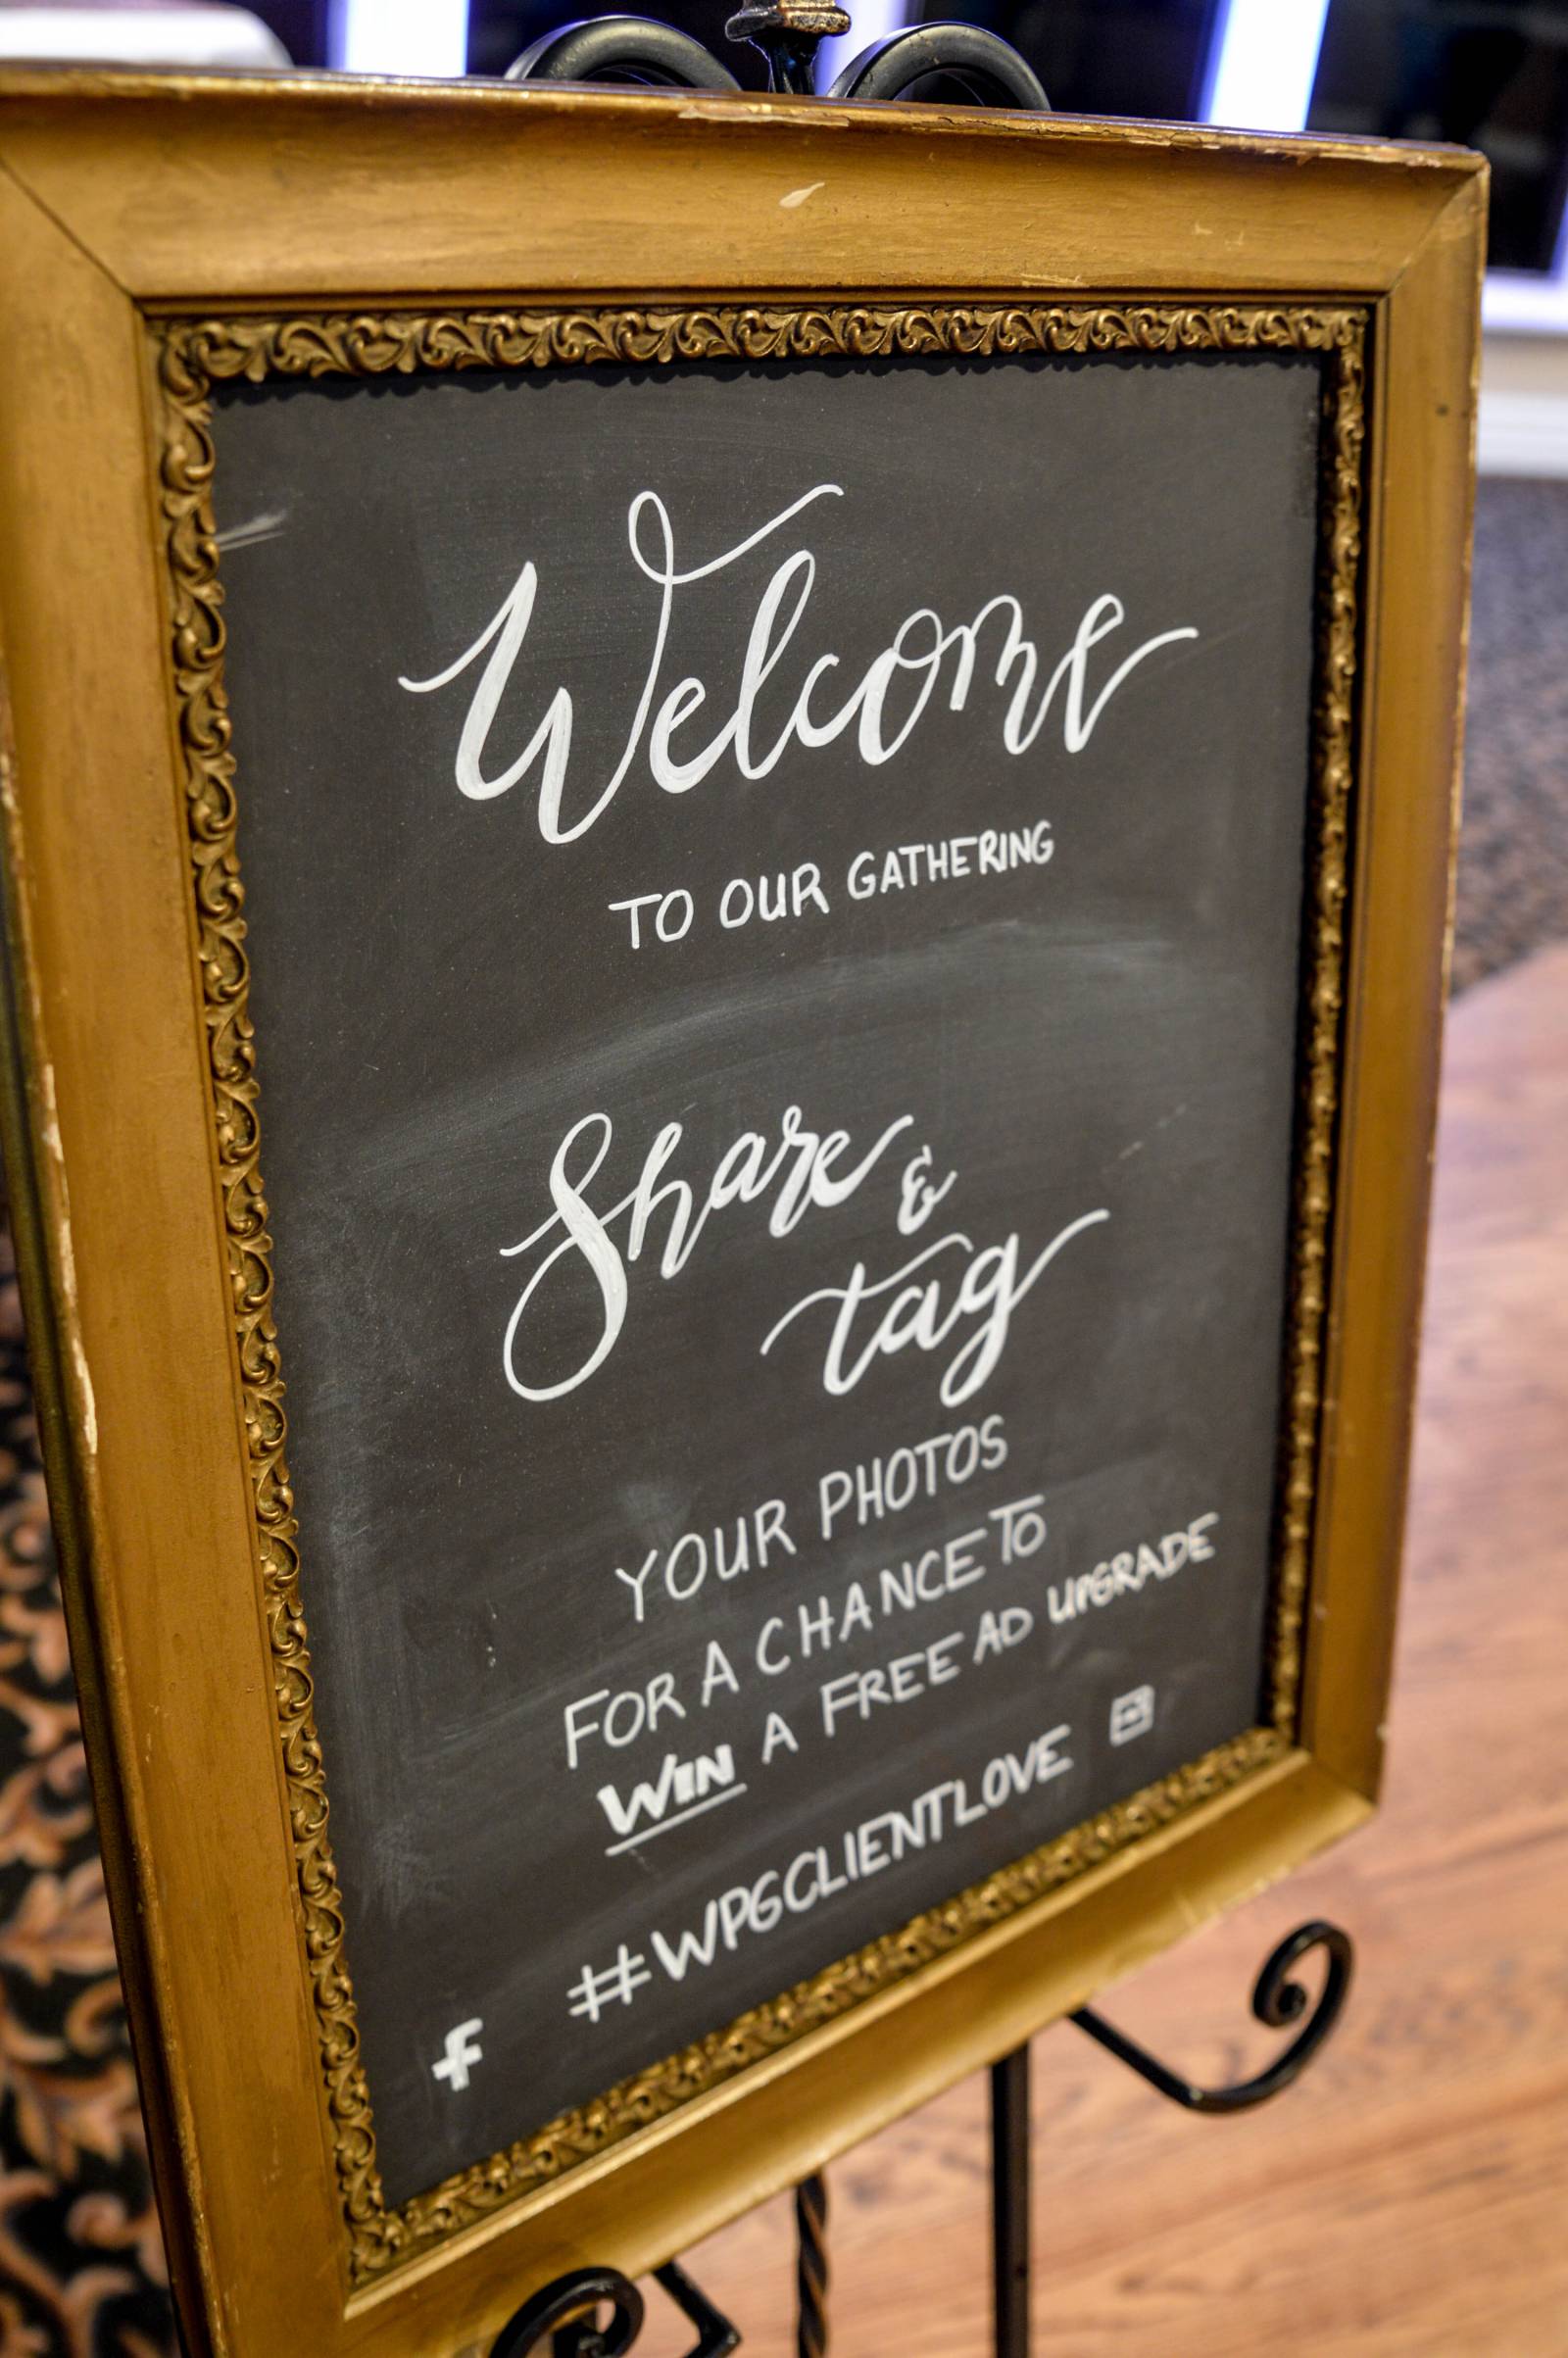 Welcome
TO OUR GATHERING
Share &
tag
YOUR PHOTOS
FOR A CHANCE TO
WIN A FREE AD UPGRADE
f #WPGCLIENTLOVE